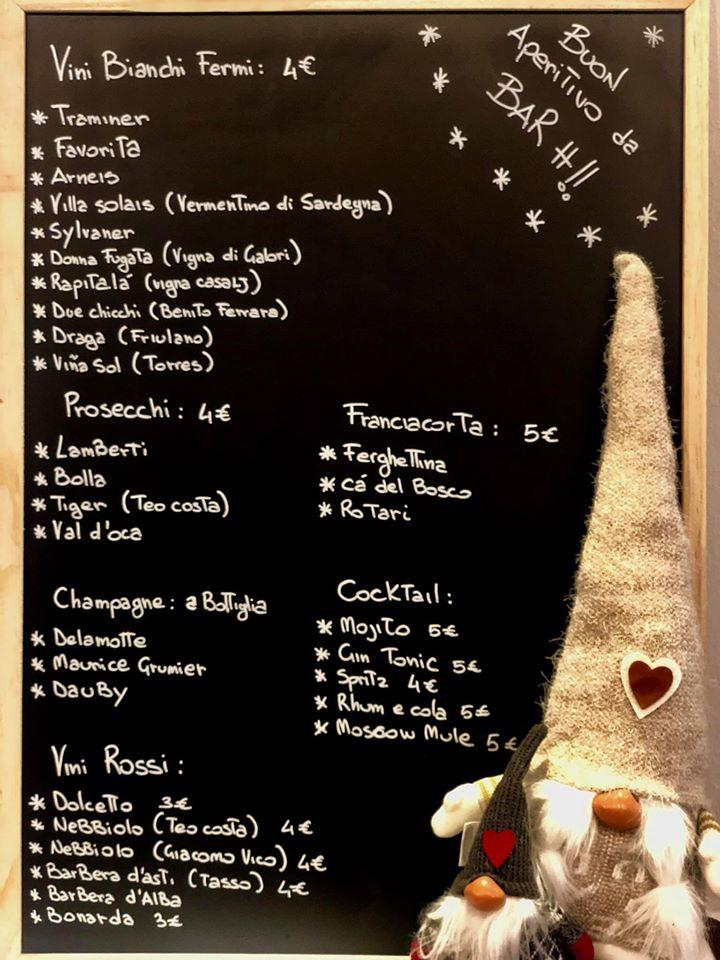 Vini Bianchi Fermi: 4€
* Traminer
* Favorita
* Arneis
* Villa solais (Vermentino di Sardegna)
* Sylvaner
* Donna Fugata (Vigna di Gabri)
* Rapitalá (vigna casalj)
* Due chicchi (Benito Ferrara)
* Draga (Friulano)
* Viña Sol (Torres)
BUON
Aperitivo da
BAR #!!
Prosecchi: 4€
* Lamberti
* Bolla
* Tiger (Teo costa)
* Val d'oca
Franciacorta: 5€
* Ferghettina
* cá del Bosco
* Rotari
Champagne: a Bottiglia
* Delamotte
* Maurice Grumier
* Dauby
Cocktail:
* Mojito 5€
* Gin Tonic 5€
* Spritz 4€
* Rhum e cola 5€
* Moscow Mule 5€
Vini Rossi:
* Dolcetto 3€
* Nebbiolo (Teo costa) 4€
* Nebbiolo (Giacomo Vico) 4€
* Barbera d'asti (Tasso) 4€
* Barbera d'Alba
* Bonarda 3€